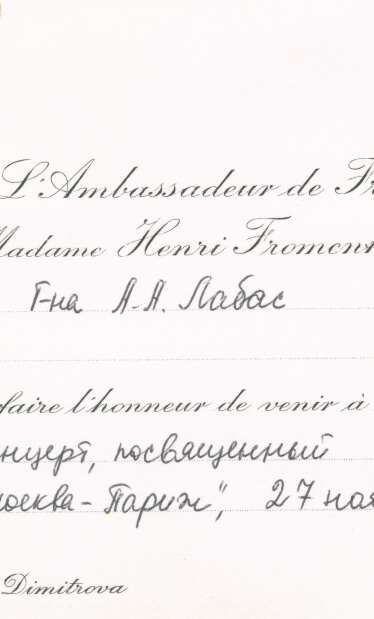 L'Ambassadeur de Fr
Madame Henri Froment
Г-на А.А. Лабас
faire l'honneur de venir à
нцерт, посвященный
осква-Париж", 27 ноя
Dimitrova